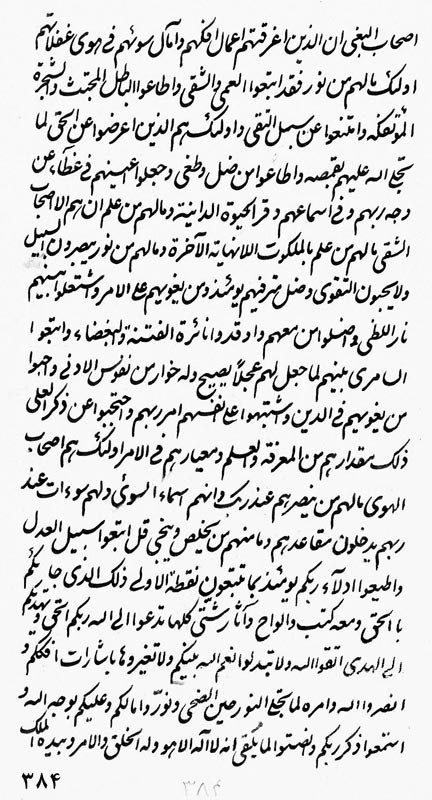 اصحاب البغی ان الذین اغرقتهم اعمال افکهم و آمال سوئهم فی هوی غفلاتهم
اولئک مالهم من نور فقد ابتعوا العمی و الشقی و اطاعوا الباطل المجتث و الشجرة
المؤتفکه و امتنعوا عن سبل التقی و اولئک هم الذین اعرضوا عن الحق لما
تجلی الله علیهم بقمصه و اطاعوا من ضل و طغی و جعلوا اعینهم فی غطآء عن
وجه ربهم و فی اسماعهم و قر الحیوة الدانیة و مالهم من علم ان هم الا اصحاب
الشقی مالهم من علم بالملکوت اللانهایة الآخرة و مالهم من نور یبصرون السبیل
ولا یحبون التقوی و ضل مترفیهم یومئذ و من یغویهم علی الامر و اشتعلوا بینهم
نار اللظی و اضلوا من معهم و اوقدوا نائرة الفتنة و البغضاء و اتبعوا
السامری بینهم لما جعل لهم عجلاً یصیح وله خوار من نفوس الادنی و احبوا
من یغویهم فی الدین و اشتبهوا علی انفسهم امر ربهم و احتجبوا عن ذکر العلی
ذلک مقدارهم من المعرفة و العلم و معیارهم فی الامر اولئک هم اصحاب
الهوی مالهم من ینصرهم عند ربک و انهم اسماء السوئ و لهم سوءات عند
ربهم یدخلون مقاعدهم و ما منهم من یخلیص و ینجی قل ابتعوا سبیل العدل
و اطیعوا ادلآء ربکم یومئذ بما تتبعون نقطة الاولی ذلک الذی جاء ربکم
بالحق و معه کتب و الواح و آثار شتی کلها تدعوا الی الله ربکم الحق و یهدیکم
الی الهدی اتقوا الله ولا تبدلوا نعم الله بینکم ولا تغیروها باشارات افککم و
انصروا الله و امره لما تجلی النور حین الضحی و نوّر و امالکم و علیکم بوجه الله و
استمعوا ذکر ربکم و انصتوا لما یلقی انه لا اله الا هو وله الخلق و الامر و بیده الملک
۳۸۴
۳۸۴